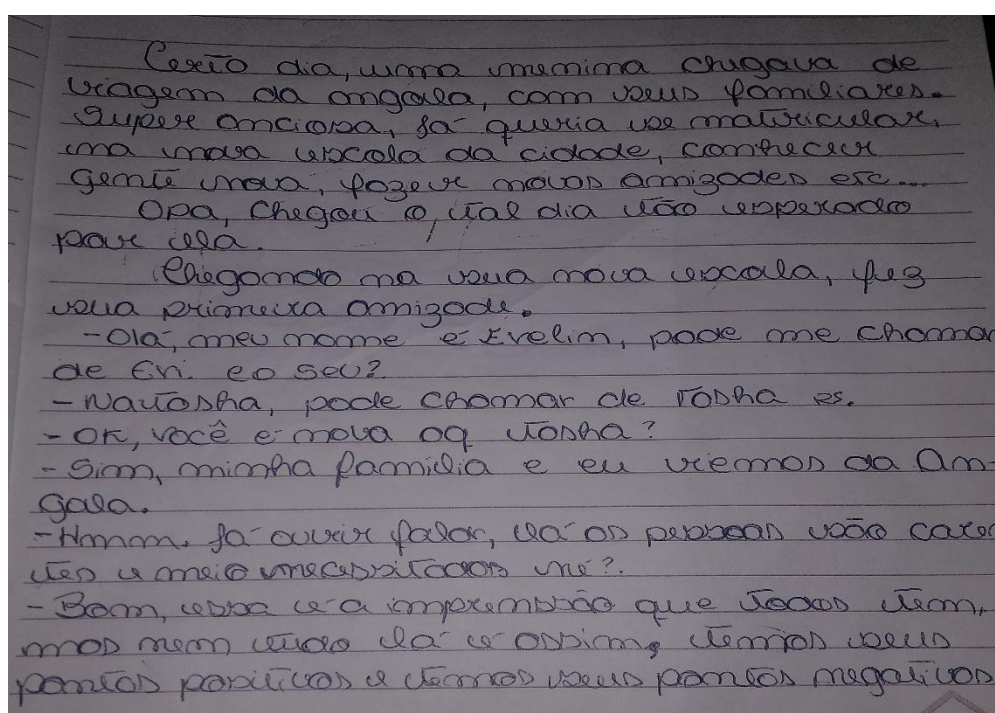 Certo dia, uma menina chegava de
viagem da angola, com seus familiares.
Super anciosa, já queria se matricular,
na nova escola da cidade, conhecer
gente nova, fazer novas amizades etc...
Opa, chegou o, tal dia tão esperado
por ela.
Chegando na sua nova escola, fez
sua primeira amizade.
-Olá, meu nome é Evelin, pode me chamar
de Evi. e o seu?
-Natasha, pode chamar de tasha rs.
-Ok, você é nova aq tasha?
-Sim, minha família e eu viemos da An-
gola.
-Hmmm. Já ouvir falar, lá as pessoas são caren
tes e meio necessitadas né?.
-Bom, essa é a impremssão que todos tem,
mas nem tudo lá é assim, temos seus
pontos positivos e temos seus pontos negativos